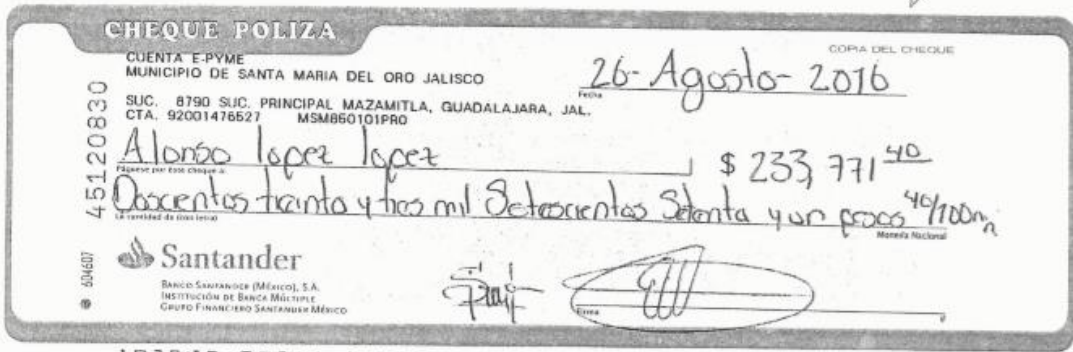 CHEQUE POLIZA
COPIA DEL CHEQUE
CUENTA E-PYME
MUNICIPIO DE SANTA MARIA DEL ORO JALISCO
26-Agosto-2016
Fecha
SUC. 8790 SUC. PRINCIPAL MAZAMITLA, GUADALAJARA, JAL.
CTA. 92001476527 MSM860101PR0
45120830
Alonso lopez lopez $ 233,771 40
Páguese por este cheque a:
Doscientos treinta y tres mil Setescientos Setenta y un pesos 40/100 m,n
La cantidad de (con letra) Moneda Nacional
604607
Santander
BANCO SANTANDER (MÉXICO), S.A.
INSTITUCIÓN DE BANCA MÚLTIPLE
GRUPO FINANCIERO SANTANDER MÉXICO
Firma